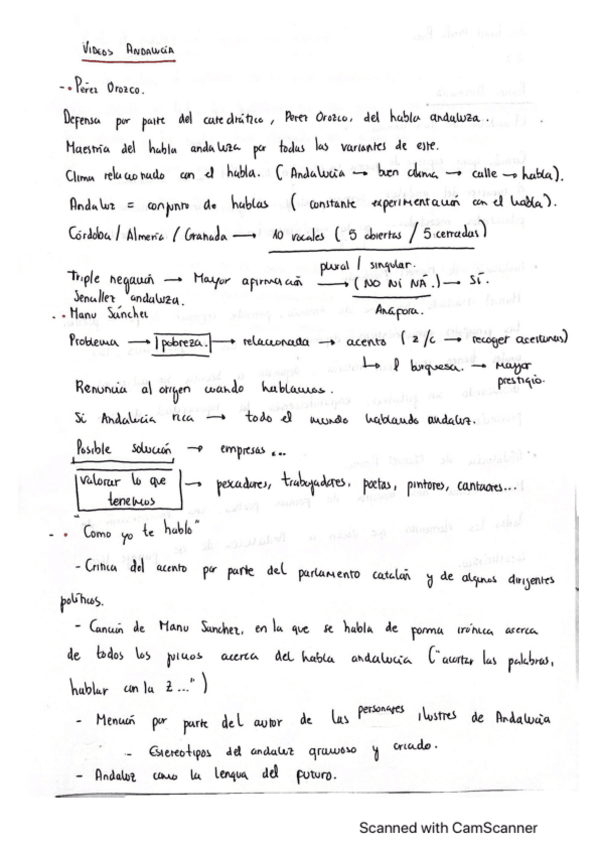 VIDEOS ANDALUCÍA
-• Pérez Orozco.
Defensa por parte del catedrático, Perez Orozco, del habla andaluza.
Maestría del habla andaluza por todas las variantes de este.
Clima relacionado con el habla. (Andalucía → buen clima → calle → habla).
Andaluz = conjunto de hablas (constante experimentación con el habla).
Córdoba / Almería / Granada → 10 vocales (5 abiertas / 5 cerradas)
plural / singular.
Triple negación → Mayor afirmación → (NO NI NÁ.) → Sí.
Sencillez andaluza. Anáfora.
-• Manu Sánchez
Problema → pobreza. → relacionada → acento (z/c → recoger aceitunas)
↳ burguesa. → Mayor
prestigio.
Renuncia al origen cuando hablamos.
Si Andalucía rica → todo el mundo hablando andaluz.
Posible solución → empresas ...
Valorar lo que
tenemos → pescadores, trabajadores, poetas, pintores, cantaores...
-• "Como yo te hablo"
- Crítica del acento por parte del parlamento catalán y de algunos dirigentes
políticos.
- Canción de Manu Sanchez, en la que se habla de forma irónica acerca
de todos los juicios acerca del habla andalucía ("acortar las palabras,
hablar con la z ...")
- Mención por parte del autor de los personajes ilustres de Andalucía
- Estereotipos del andaluz gracioso y criado.
- Andaluz como la lengua del futuro.
Scanned with CamScanner